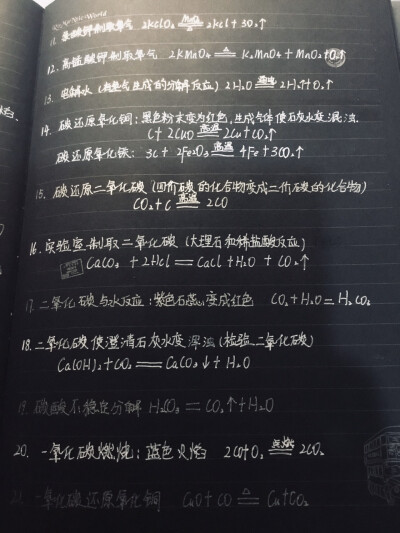 11. 氯酸钾制取氧气 2KClO₃ MnO₂ △ 2KCl + 3O₂↑
12. 高锰酸钾制取氧气 2KMnO₄ △ K₂MnO₄ + MnO₂ + O₂↑
13. 电解水 2H₂O 通电 2H₂↑ + O₂↑
14. 碳还原氧化铜：黑色粉末变为红色，生成气体使石灰水浑浊
C + 2CuO 高温 2Cu + CO₂↑
碳还原氧化铁： 3C + 2Fe₂O₃ 高温 4Fe + 3CO₂↑
15. 碳还原二氧化碳（四价碳的化合物变成二价碳的化合物）
CO₂ + C 高温 2CO
16. 实验室制取二氧化碳（大理石和稀盐酸反应）
CaCO₃ + 2HCl == CaCl + H₂O + CO₂↑
17. 二氧化碳与水反应：紫色石蕊变成红色 CO₂ + H₂O = H₂CO₃
18. 二氧化碳使澄清石灰水变浑浊（检验二氧化碳）
Ca(OH)₂ + CO₂ == CaCO₃↓ + H₂O
19. 碳酸不稳定分解 H₂CO₃ == CO₂↑ + H₂O
20. 一氧化碳燃烧：蓝色火焰 2CO + O₂ 点燃 2CO₂
21. 一氧化碳还原氧化铜 CuO + CO △ Cu + CO₂